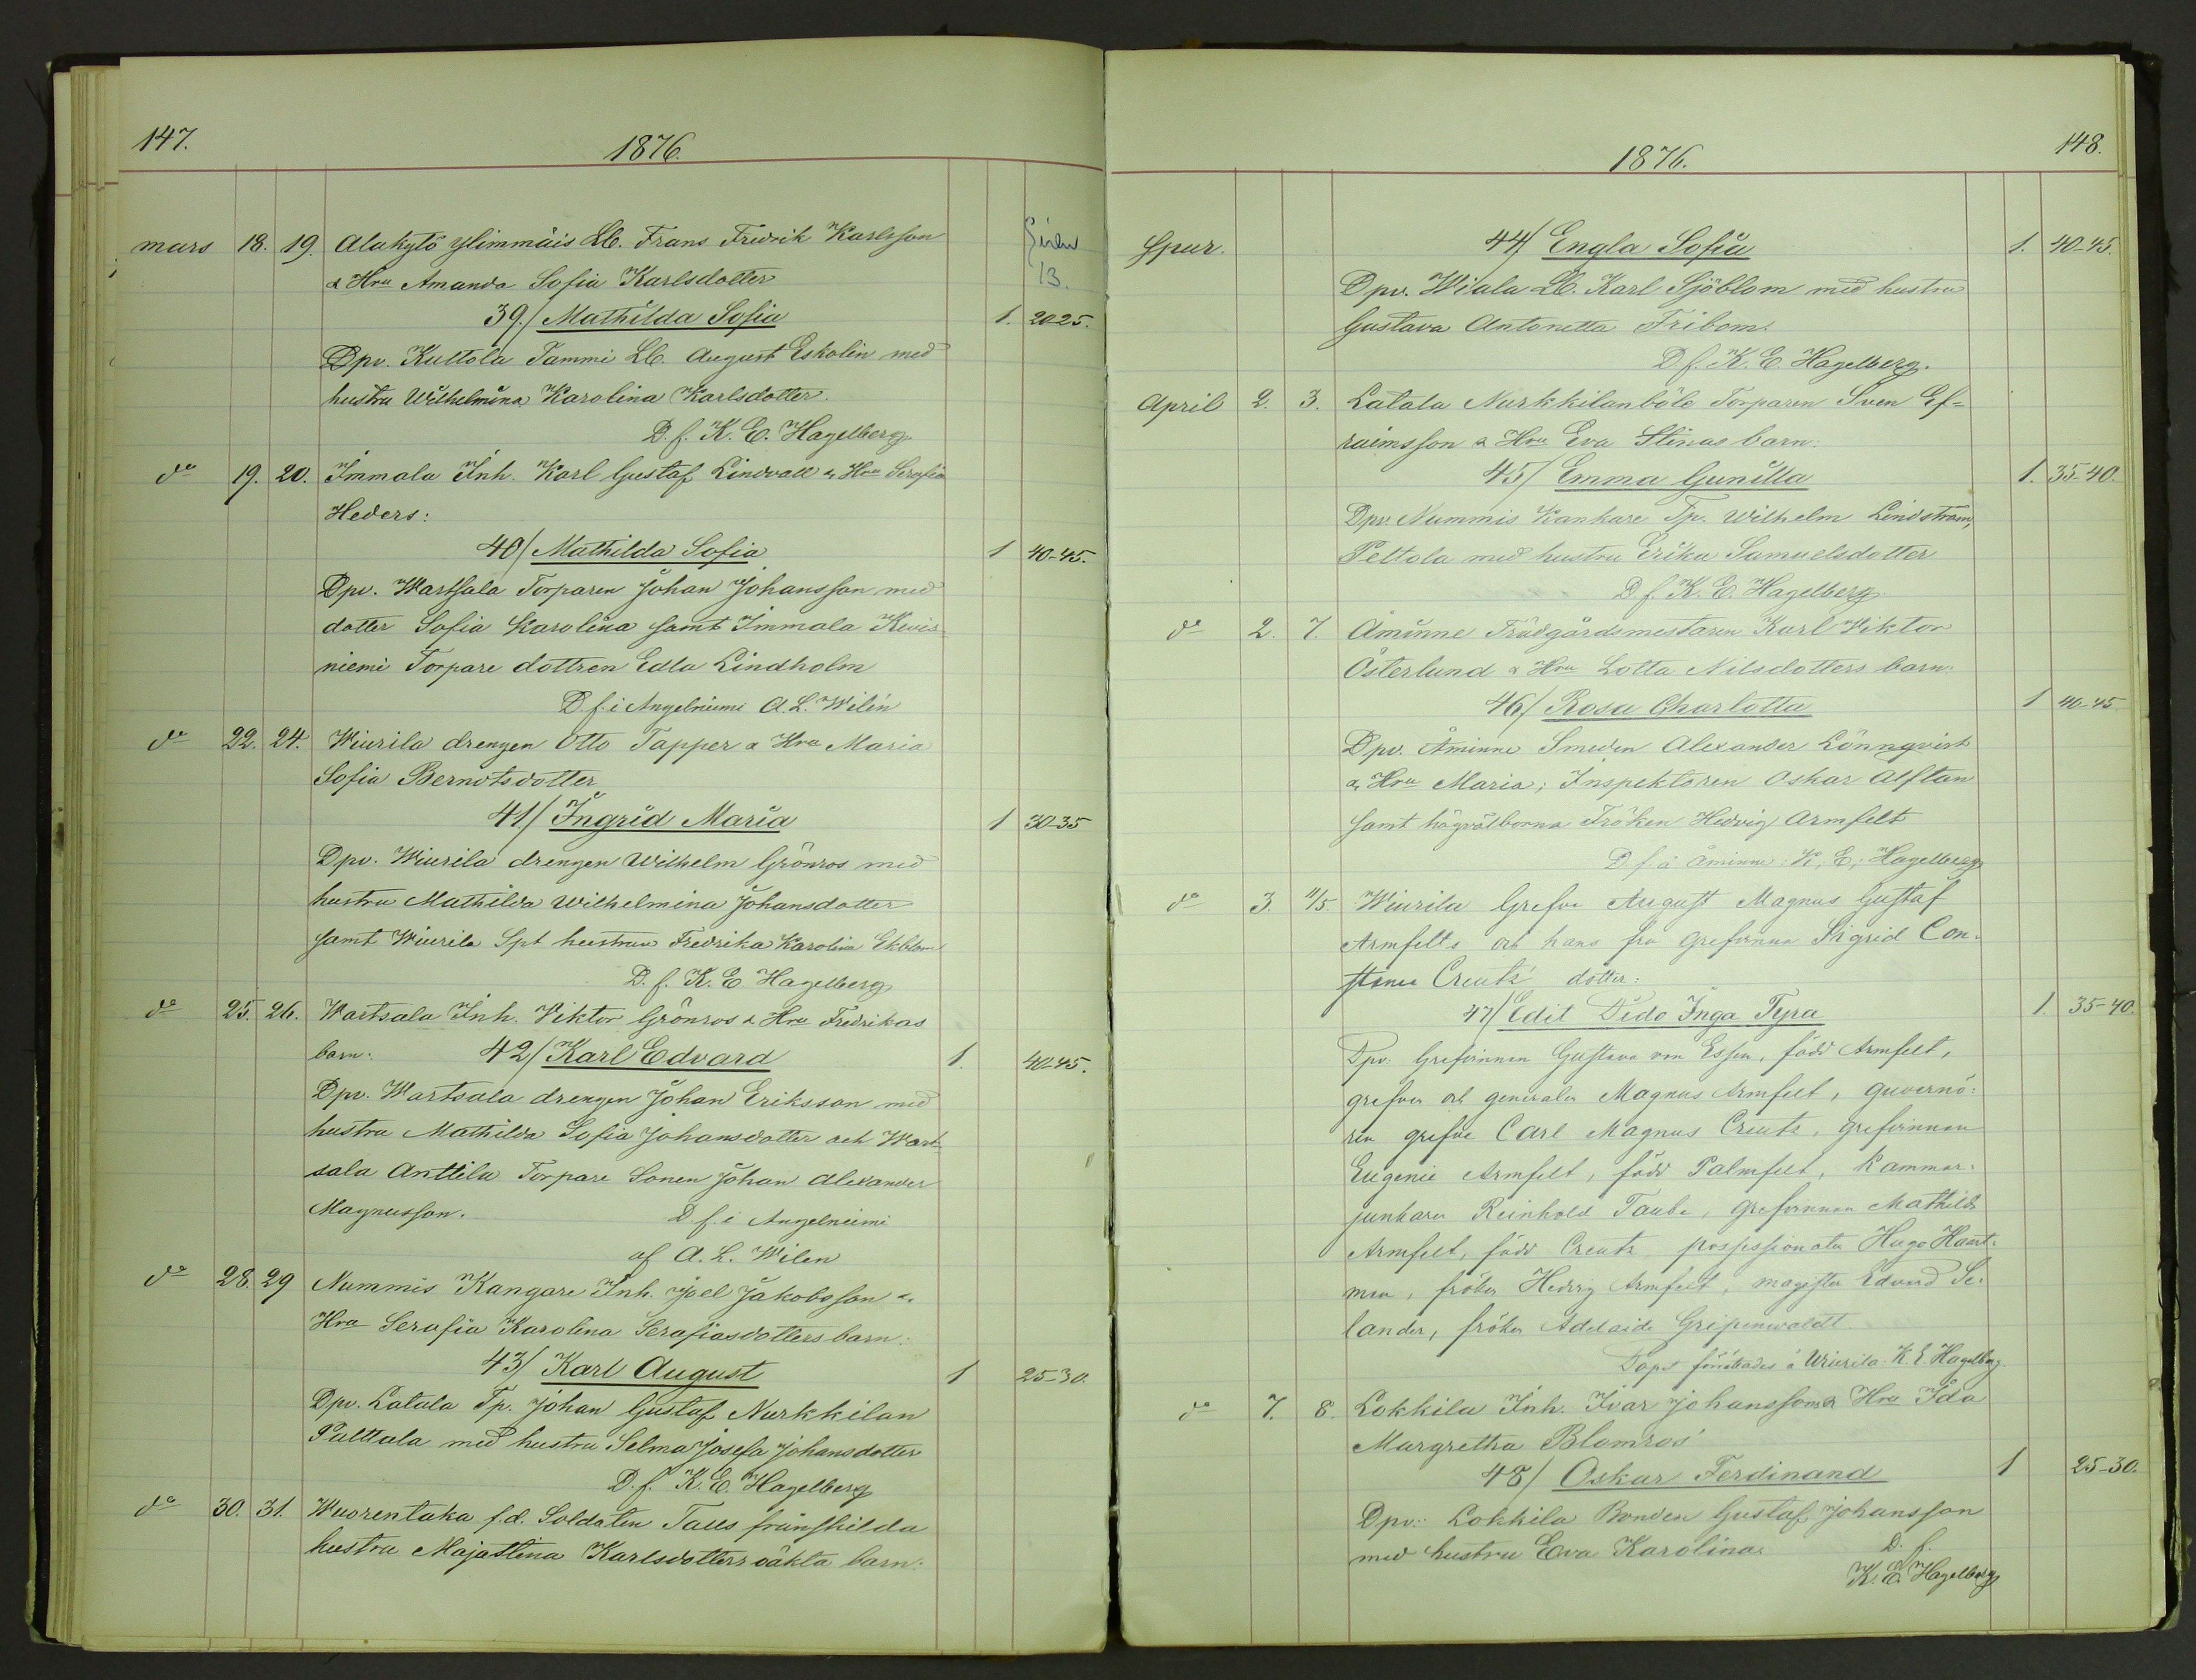 147.
1876.
mars 18. 19. Alakytö Ylimmäis Lb. Frans Fredrik Karlsson
& Hru Amanda Sofia Karlsdotter 13.
39./ Mathilda Sofia 1. 20-25.
Dpv. Kultola Tammi Lb. August Eskolin med
hustru Wilhelmina Karolina Karlsdotter.
D. f. K. E. Hagelberg
do 19. 20. Immala Inh. Karl Gustaf Lindvall & Hru Serafia
Heders:
40/ Mathilda Sofia 1 40-45.
Dpv. Wartsala Torparen Johan Johansson med
dotter Sofia Karolina samt Immala Kevis
niemi Torpare dottren Edla Lindholm
D. f. i Angelniemi A. L. Wilén
do 22. 24. Wiurila drengen Otto Tapper & Hru Maria
Sofia Berndtsdotter
41/ Ingrid Maria 1 30-35
Dpv. Wiurila drengen Wilhelm Grönros med
hustru Mathilda Wilhelmina Johansdotter
samt Wiurila Spt hustrun Fredrika Karolina Ekblom
D. f. K. E. Hagelberg
do 25. 26. Wartsala Inh. Viktor Grönros & Hru Fredrikas
barn: 42/ Karl Edvard 1. 40-45.
Dpv. Wartsala drengen Johan Eriksson med
hustru Mathilda Sofia Johansdotter och Wart-
sala Anttila Torpare Sonen Johan Alexander
Magnusson. D. f. i Angelniemi
af A. L. Wilen
do 28. 29 Nummis Kangare Inh. Joel Jakobsson &
Hru Serafia Karolina Serafiasdotters barn:
43/ Karl August 1 25-30.
Dpv. Latala Tp. Johan Gustaf Nurkkilan
Pulttala med hustru Selma Josefa Johansdotter
D. f. K. E. Hagelberg
do 30. 31. Wuorentaka f.d. Soldaten Talls frånskilda
hustru Majastina Karlsdotters oäkta barn:
148.
1876.
Spur. 44/ Engla Sofia 1. 40-45.
Dpv. Wiala Lb. Karl Sjöblom med hustru
Gustava Antonetta Fribom.
D. f. K. E. Hagelberg.
April 2. 3. Latala Nurkkilanböle Torparen Sven Ef-
raimsson & Hru Eva Stinas barn:
45/ Emma Gunilla 1. 35-40.
Dpv. Nummis Kankare Tp. Wilhelm Lindström,
Peltola med hustru Erika Samuelsdotter
D. f. K. E. Hagelberg
do 2. 7. Åminne Trädgårdsmestaren Karl Viktor
Österlund & Hru Lotta Nilsdotters barn:
46/ Rosa Charlotta 1 40-45
Dpv. Åminne Smeden Alexander Lönnqvist
& Hru Maria; Inspektoren Oskar Alftan
samt högvälborna Fröken Hedvig Armfelt
D. f. å Åminne: K. E. Hagelberg
do 3. 11/5. Wiurila Grefve August Magnus Gustaf
Armfelts och hans fru grefvinnan Sigrid Con-
stance Creutz' dotter:
47/ Edit Dido Inga Tyra 1. 35-40.
Dpv: Grefvinnan Gustava von Essen, född Armfelt,
grefven och generalen Magnus Armfelt, guvernö:
ren grefve Carl Magnus Creutz, grefvinnan
Eugenie Armfelt, född Palmfelt, Kammar-
junkaren Reinhold Taube, grefvinnan Mathilda
Armfelt, född Creutz, possessionaten Hugo Haart-
man, fröken Hedvig Armfelt, magister Edvard Se-
lander, fröken Adelaide Gripenwaldt.
Dopet förrättades å Wiurila. K. E. Hagelberg
do 7. 8. Lokkila Inh. Ivar Johansson & Hru Ida
Margretha Blomros'
48/ Oskar Ferdinand 1 25-30.
Dpv: Lokkila Bonden Gustaf Johansson
med hustru Eva Karolina. D. f.
K. E. Hagelberg